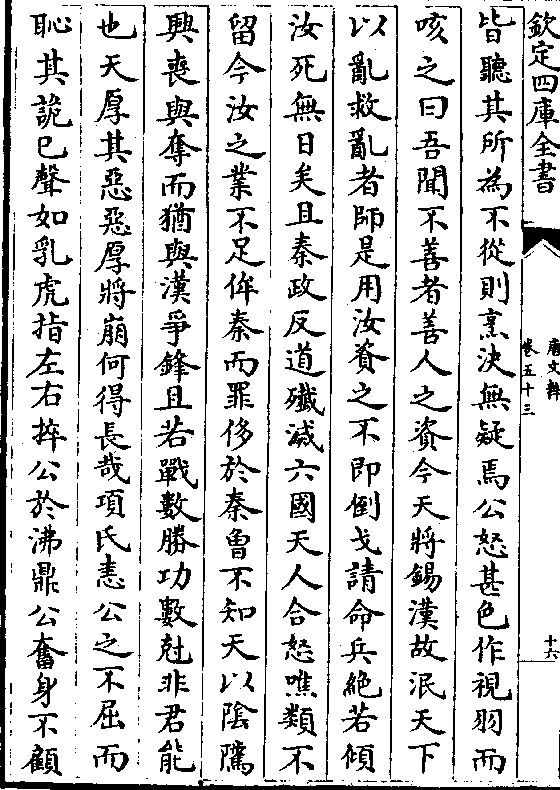 欽定四庫全書
唐文粹
卷五十三
十六
皆聽其所為不從則烹決無疑焉公怒甚色作視羽而
咳之曰吾聞不善者善人之資今天將錫漢故泯天下
以亂救亂者師是用汝資之不即倒戈請命兵絶若傾
汝死無日矣且秦政反道殱滅六國天人合怒噍類不
留今汝之業不足侔秦而罪侈於秦曾不知天以陰隲
興喪與奪而猶與漢爭鋒且若戰數勝功數尅非君能
也天厚其惡惡厚將崩何得長哉項氏恚公之不屈而
恥其詭已聲如乳虎指左右捽公於沸鼎公奮身不顧